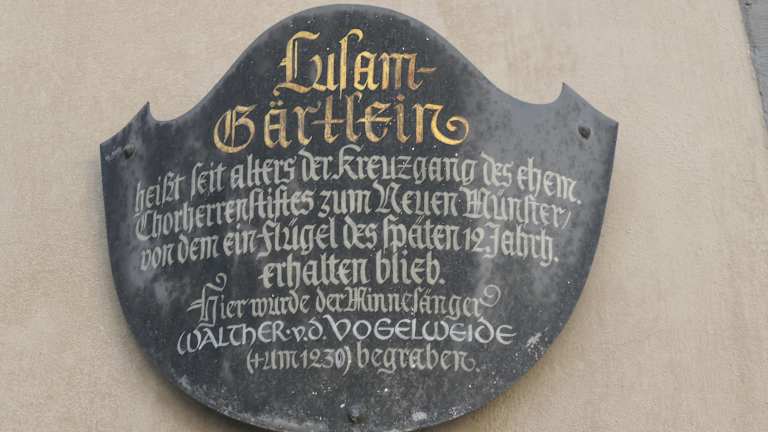 Lusam-
Gärtlein
heißt seit alters der Kreuzgang des ehem.
Chorherrenstiftes zum Neuen Münster,
von dem ein Flügel des späten 12. Jahrh.
erhalten blieb.
Hier wurde der Minnesänger
WALTHER·v.d. VOGELWEIDE
(+um 1230) begraben.